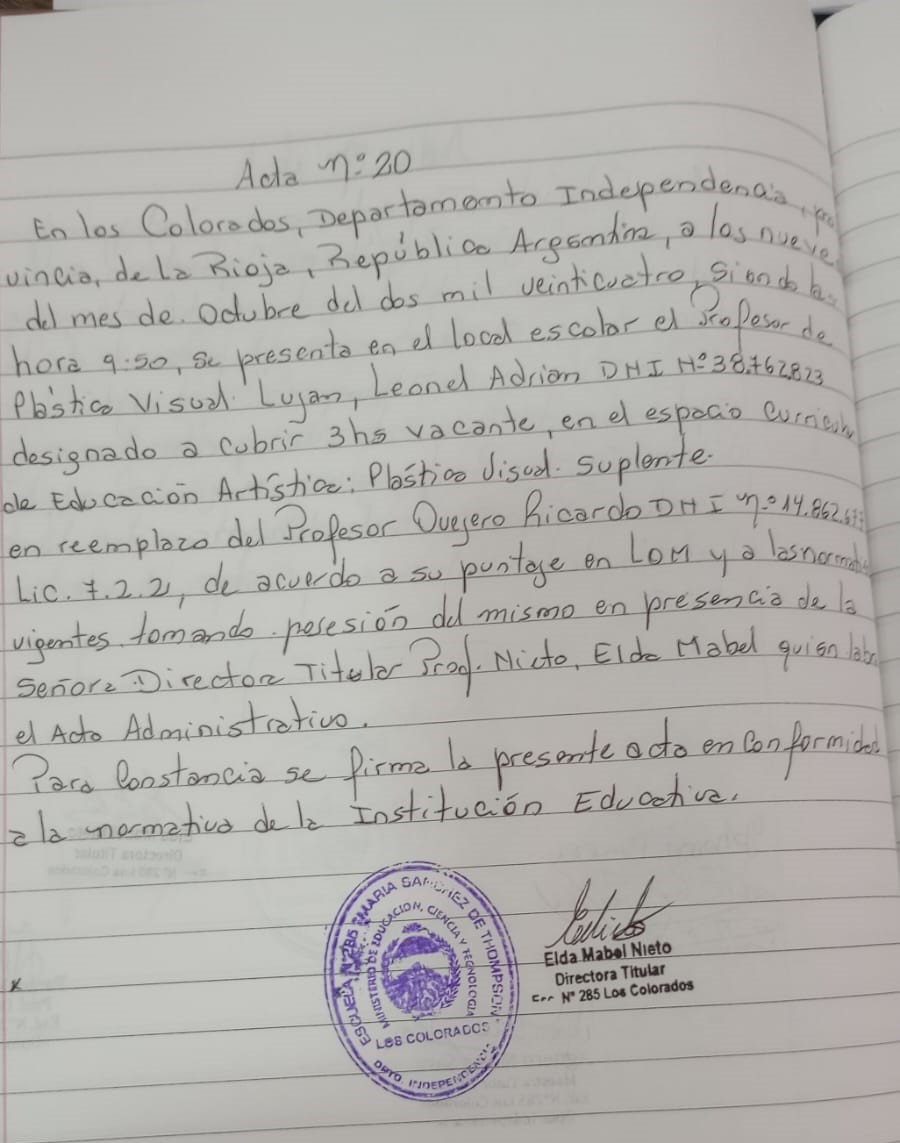 Acta n° 20
En los Colorados, Departamento Independencia, pro
vincia, de La Rioja, República Argentina, a los nueve
del mes de Octubre del dos mil veinticuatro, siendo las
hora 9:50, se presenta en el local escolar el Profesor de
Plástica Visual Lujan, Leonel Adrian DNI N° 38.762.823
designado a cubrir 3hs vacante, en el espacio Curricular
de Educación Artística: Plástica Visual. Suplente.
en reemplazo del Profesor Quejero Ricardo DNI n° 14.862.
Lic. 7.2.2, de acuerdo a su puntaje en LOM y a las normati
vigentes, tomando posesión del mismo en presencia de la
Señora Directora Titular Prof. Nieto, Elda Mabel quien labra
el Acto Administrativo.
Para Constancia se firma la presente acta en Conformidad
a la normativa de la Institución Educativa.
ESCUELA N° 285 MARIA SANCHEZ DE THOMPSON
MINISTERIO DE EDUCACION, CIENCIA Y TECNOLOGIA
LOS COLORADOS
DPTO. INDEPENDENCIA
Elda Mabel Nieto
Directora Titular
N° 285 Los Colorados
x